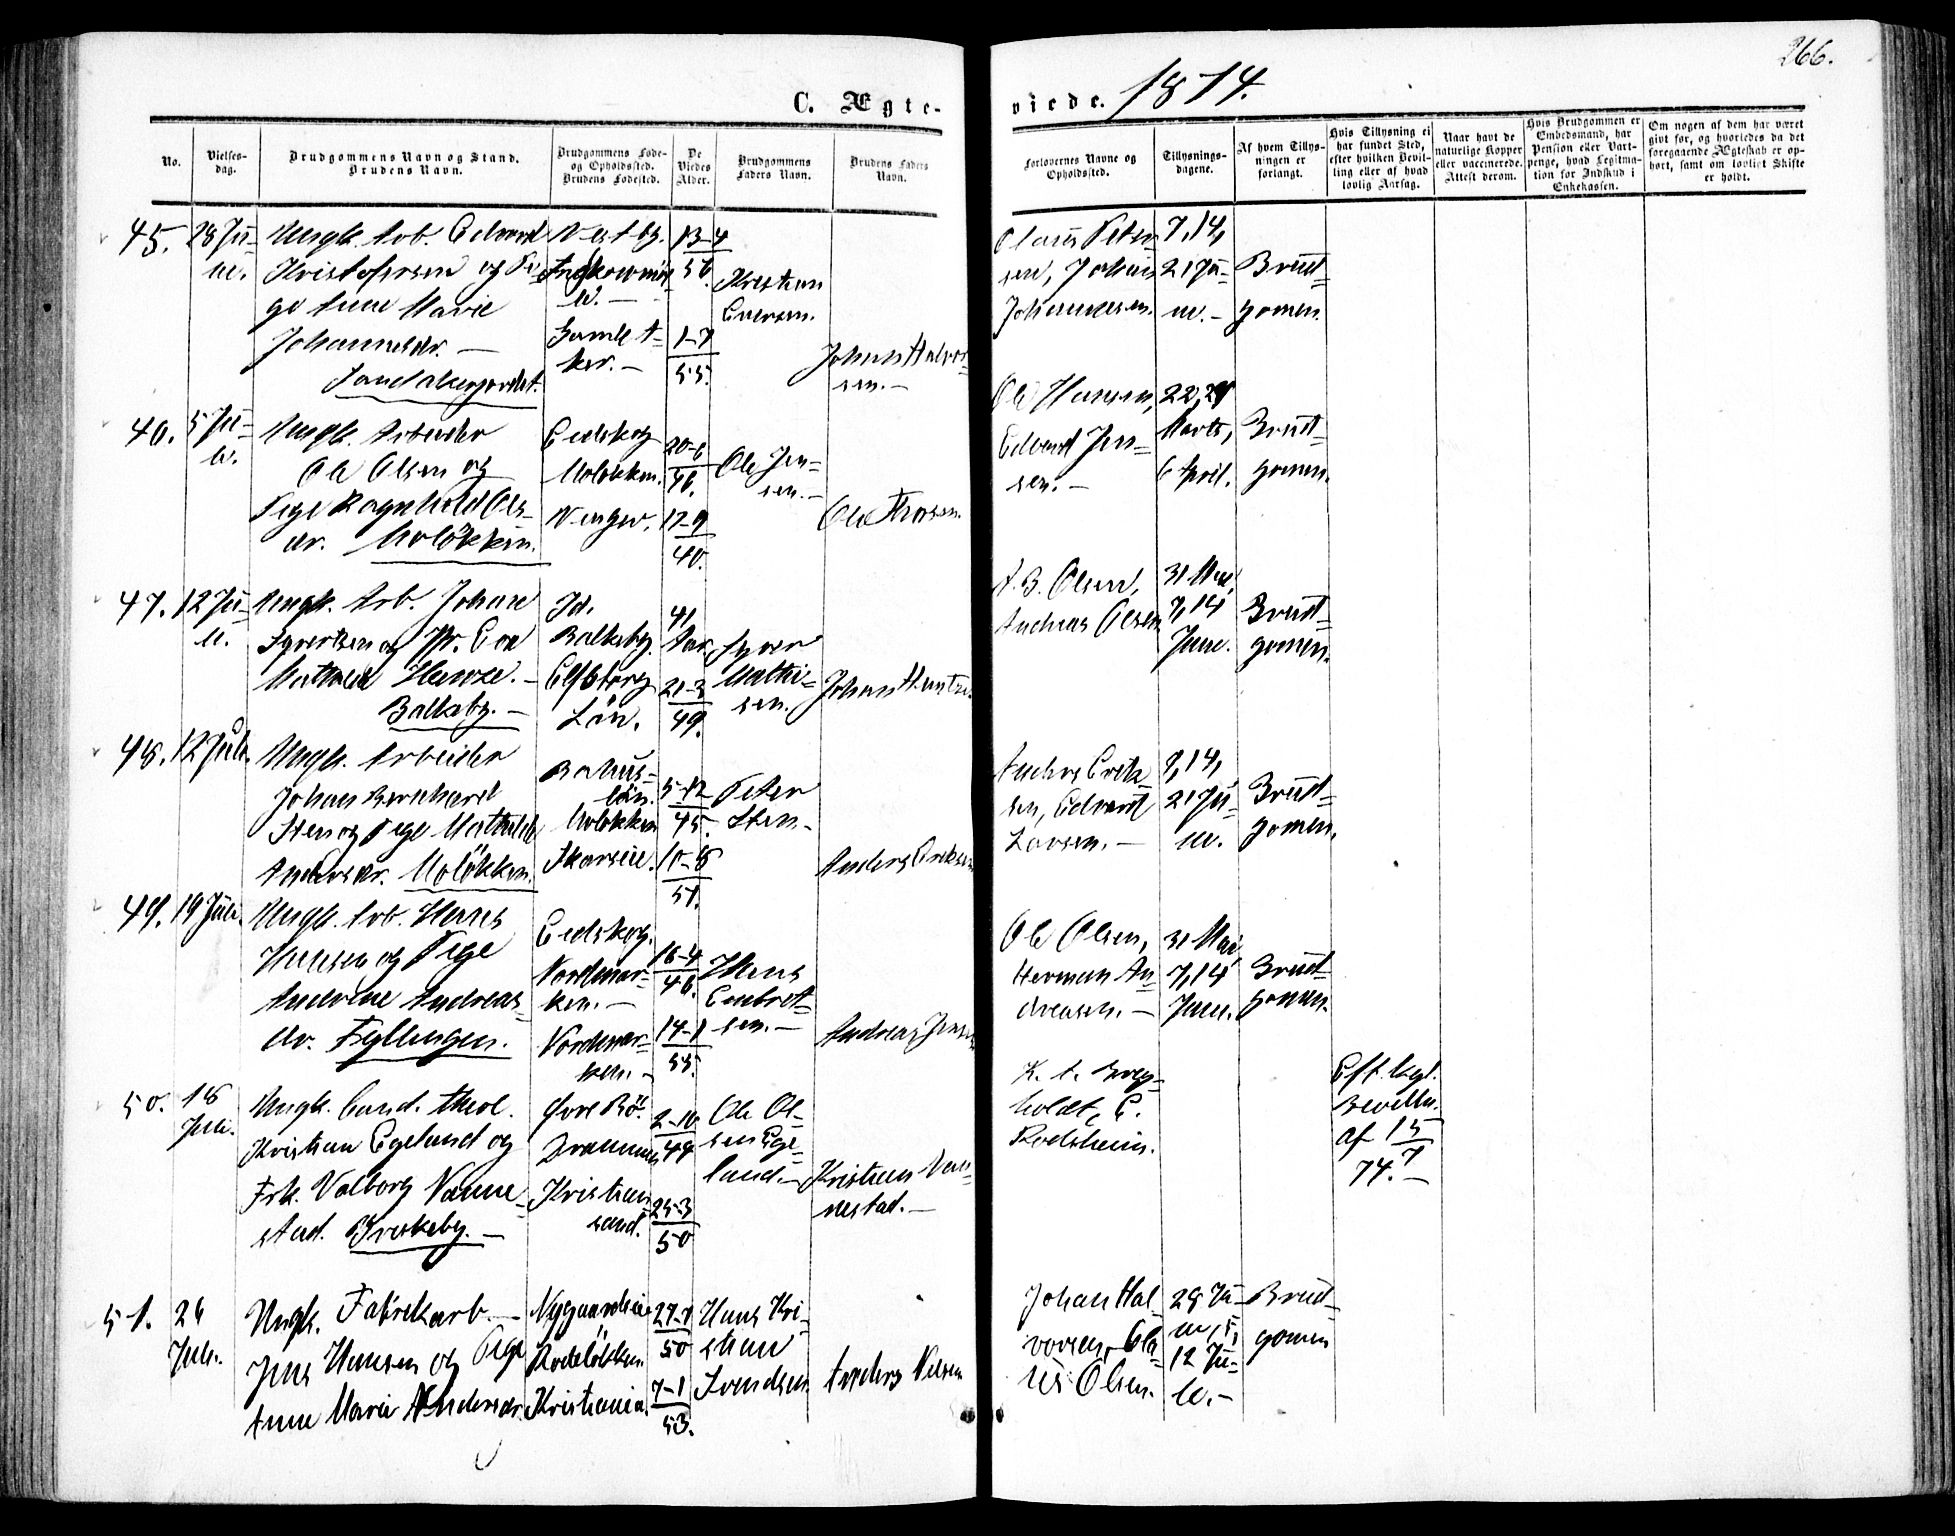 266.
C. Ægte-
viede. 1874.
No.
Vielses-
dag.
Brudgommens Navn og Stand.
Brudens Navn.
Brudgommens Føde-
og Opholdssted.
Brudens Fødested.
De
Viedes
Alder.
Brudgommens
Faders Navn.
Brudens Faders
Navn.
Forlovernes Navne og
Opholdssted.
Tillysnings-
dagene.
Af hvem Tillys-
ningen er
forlangt.
Hvis Tillysning ei
har fundet Sted,
efter hvilken Bevil-
ling eller af hvad
lovlig Aarsag.
Naar havt de
naturlige Kopper
eller vaccinerede.
Attest derom.
Hvis Brudgommen er
Embedsmand, har
Pension eller Vart-
penge, hvad Legitima-
tion for Indskud i
Enkekassen.
Om nogen af dem har været
givt før, og hvorledes da det
foregaaende Ægteskab er op-
hørt, samt om lovligt Skifte
er holdt.
45.
28 Ju-
ni.
Ungk. Arb. Edvard
Kristofersen og Pi-
ge Anne Marie
Johannesdr. —
Sandakerjordet.
Vestby.
Gamle A-
ker. —
13-4
56.
1-7
55.
Kristian
Johan Halvor-
sen. —
Olaus Peter-
sen, Johan
Johannesen.
7, 14,
21 Ju-
ni. -
Brud-
gomen.
46.
5 Ju-
li.
Ungk. Arbeider
Ole Olsen og
Pige Ragnhild Ols-
dr. Moløkken.
Eidskog
Moløkken.
Vinger.
20-6
46.
12-9
40.
Ole Jen-
sen. —
Ole Thorsen.
Ole Hansen,
Edvard Jen-
sen. —
22, 29
Marts,
6 April.
Brud-
gomen.
47.
12 Ju-
li.
Ungk. Arb. Johan
Syvertsen og Pr. Eva
Mathilde —
Balkeby. —
Id.
Balkeby.
Elfsborg
Län.
41
Aar.
21-3
49.
Syver
Mathi-
sen.
A. B. Olsen,
Andreas Olsen
31 Mai,
7, 14
Juni.
Brud-
gomen.
48.
12 Juli.
Ungk. Arbeider
Johan Bernhard
Sten og Pige Mathilde
Andersdr. Moløkken.
Bahus-
län.
Moløkken
5-12
45.
10-8
51.
Peter
Sten -
Anders Eriksen
Anders Erik-
sen, Edvard
Larsen. —
7, 14,
21 Ju-
ni.
Brud-
gomen.
49.
19 Juli.
Ungk. Arb. Hans
Hansen og Pige
Andrine Andreas-
dr. Fyllingen.
Eidskog.
Nordmar-
ken. —
Nordmar-
ken. —
16-4
46.
14-1
55.
Hans
Embret-
sen. —
Andreas Jensen
Ole Olsen,
Herman An-
dreasen. —
31 Mai,
7, 14
Juni.
Brud-
gomen.
50.
18
Juli.
Ungk. Cand. theol.
Kristian Egeland og
Frk. Valborg Vanne-
stad. Briskeby. —
Øvre Bø.
Drammen
Kristian-
sand.
2-10
44
25-3
50
Ole Ol-
sen Ege-
land. —
Kristian Van-
nestad. —
K. A. Breg-
holdt, E.
Rodsheim.
Eft. kgl.
Bevilln.
af 15
7
74. —
51.
26
Juli.
Ungk. Fabrikarb. —
Jens Hansen og Pige
Anne Marie Andersdr.
Nygaardseie
Rodeløkken
Kristiania.
27-7
50
7-1
53.
Hans Kri-
stian
Svendsen
Anders Nilsen
Johan Hal-
vorsen, Ola-
us Olsen.
29 Ju-
ni, 5,
12 Ju-
li. -
Brud-
gomen